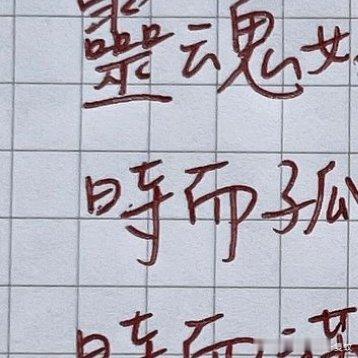 靈魂
時而孤
時而